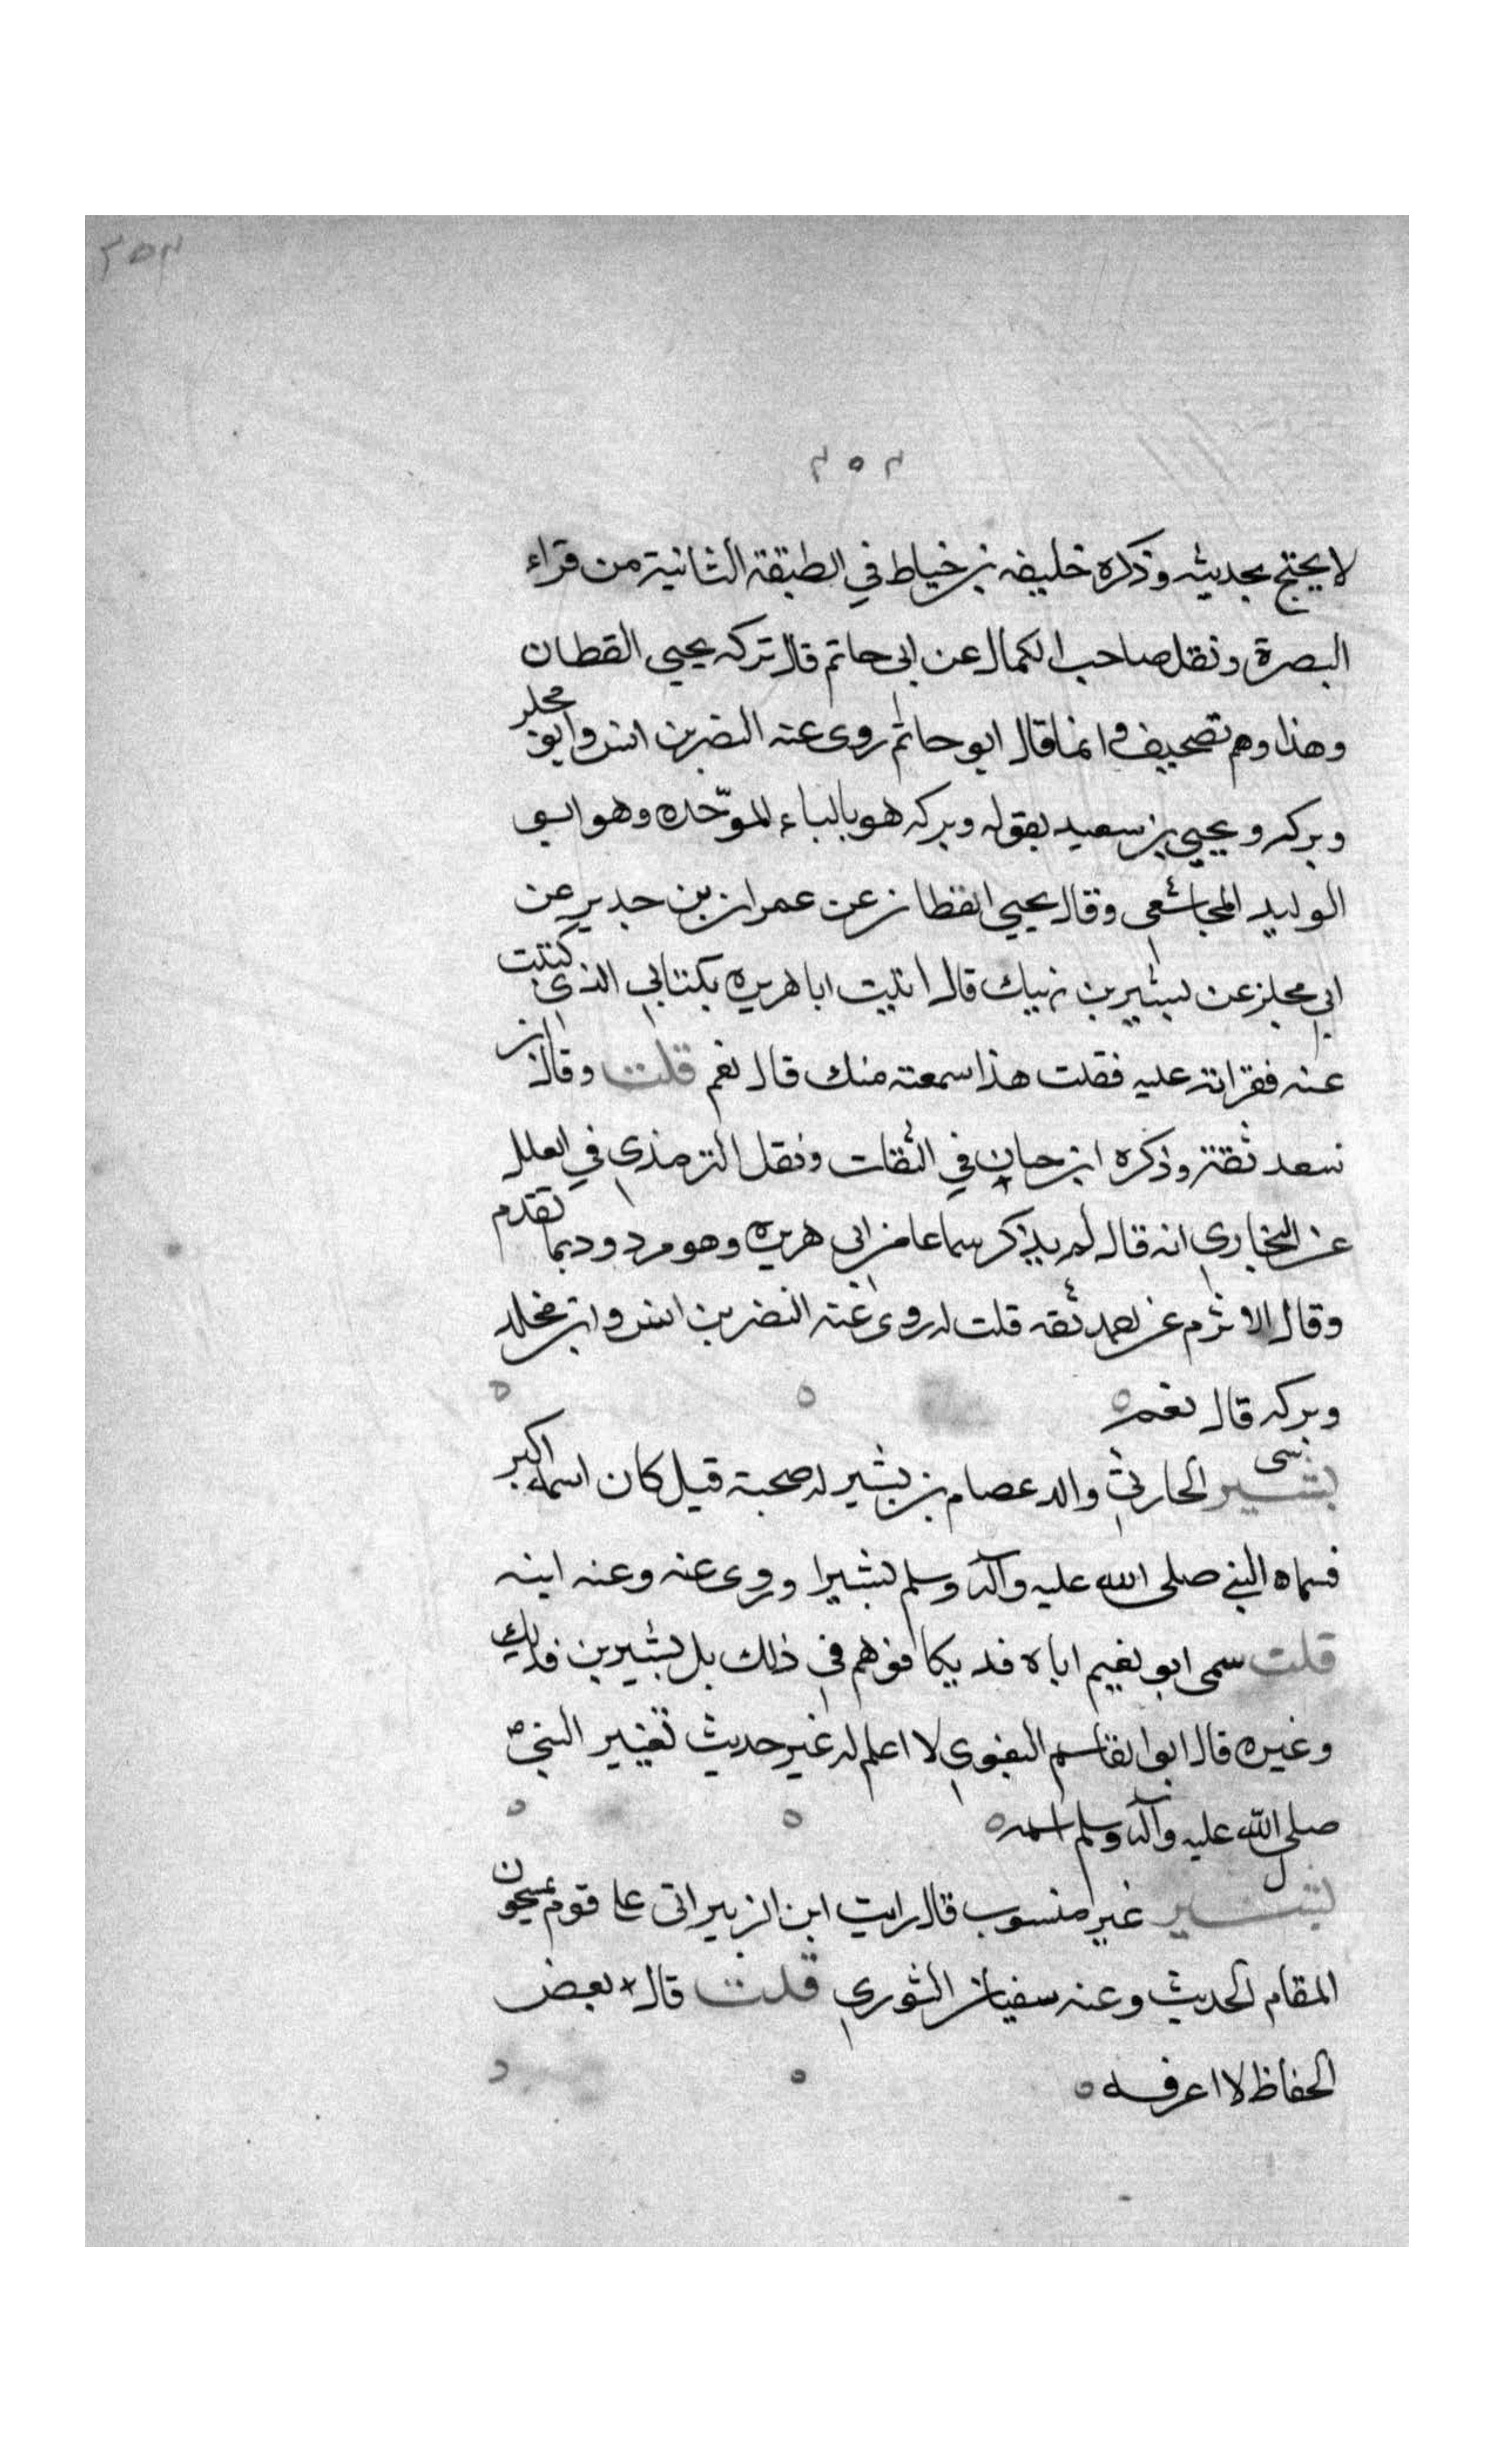 ٢٥٣
٢٥٣
لا يحتج بحديثه وذكره خليفه بن خياط في الطبقة الثانية من قراء
البصرة ونقل صاحب الكمال عن ابى حاتم قال تركه يحيى القطان
وهذا وهم تصحيف وانما قال ابو حاتم روى عنه النضر بن انس وابو مجلز
وبركه ويحيى بن سعيد بقوله وبركه هو بالباء الموحّده وهو ابو
الوليد المجاشعى وقال يحيى القطان عن عمران بن حدير عن
ابى مجلز عن بشير بن نهيك قال اتيت ابا هريره بكتابي الذى كتبت
عنه فقراته عليه فقلت هذا سمعته منك قال نعم قلت وقال ابن
سعد ثقة وذكره ابن حبان في الثقات ونقل الترمذى في العلل
عن البخاري انه قال لم يذكر سماعا من ابى هريره وهو مردود بما تقدم
وقال الاثرم عن احمد ثقه قلت له روى عنه النضر بن انس وابن مخلد
وبركه قال نعم
بشير الحارثي والد عصام بن بشير له صحبة قيل كان اسمه اكبر
فسماه النبي صلى الله عليه وآله وسلم بشيرا وروى عنه وعنه ابنه
قلت سمى ابو نعيم اباه فديكا فوهم في ذلك بل بشير بن فديك
وغيره قال ابو القاسم البغوي لا اعلم له غير حديث تغيير النبي
صلى الله عليه وآله وسلم اسمه
بشير غير منسوب قال رايت ابن الزبير اتى على قوم يمسحون
المقام الحديث وعنه سفيان الثوري قلت قال بعض
الحفاظ لا اعرفه